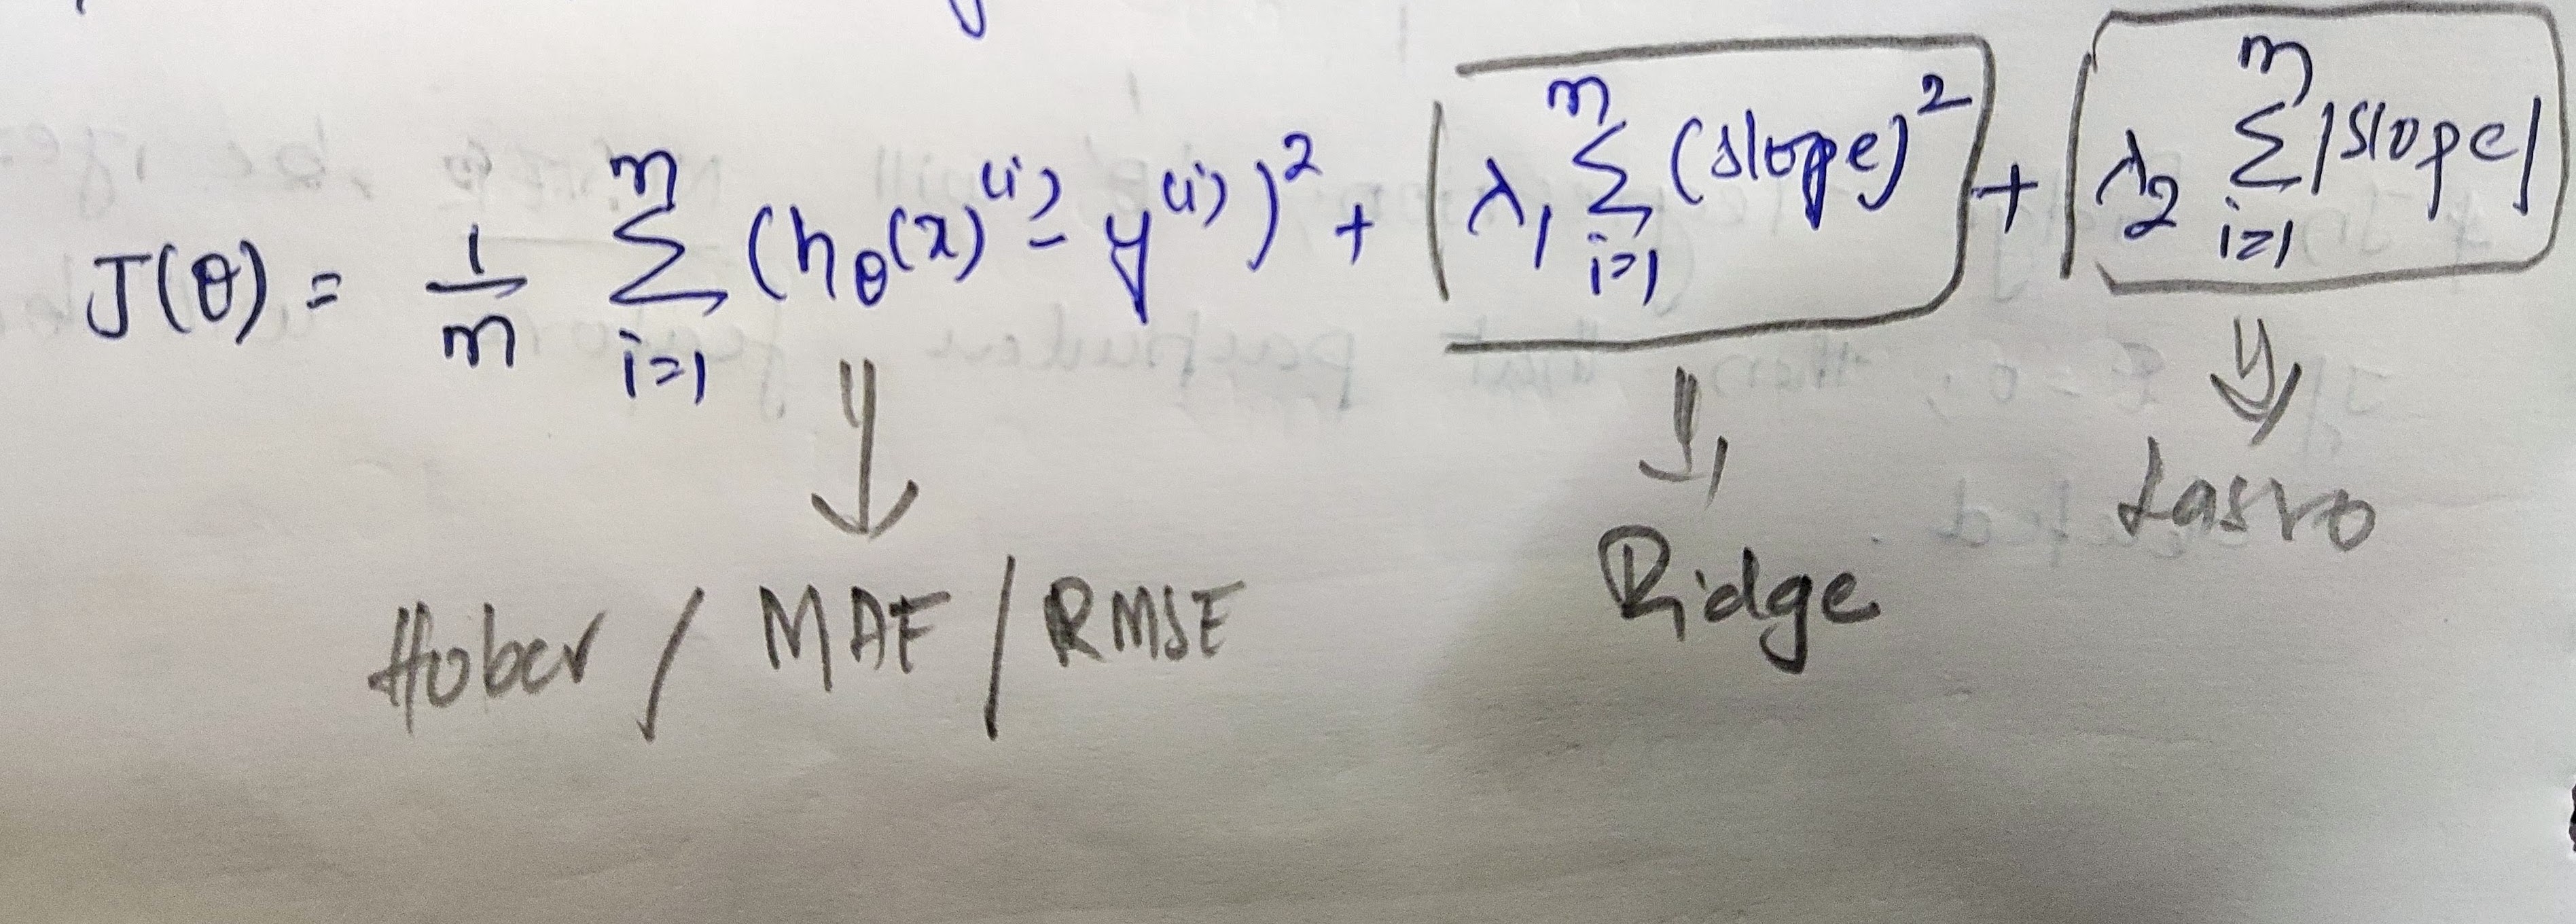 J(θ) = 1/m Σ_{i=1}^{m} (h_θ(x)^{(i)} - y^{(i)})^2 + [λ_1 Σ_{i=1}^{m} (slope)^2] + [λ_2 Σ_{i=1}^{m} |slope|]
Hober / MAE / RMSE
Ridge
Lasso